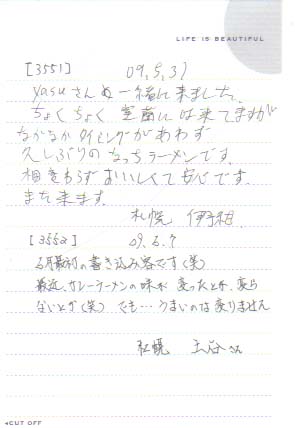 LIFE IS BEAUTIFUL
[3551] 09,5,31
yasuさんと一緒に来ました。
ちょくちょく室蘭には来てますが
なかなかタイミングがあわず
久しぶりのなっちラーメンです。
相変わらずおいしくて安心です。
また来ます。
札幌 伊
[3552] 09.6.7
6月最初の書き込み客です(笑)
最近、カレーラーメンの味が変ったとか、変ら
ないとか(笑) でも…うまいのは変りません
札幌 さん
◂CUT OFF